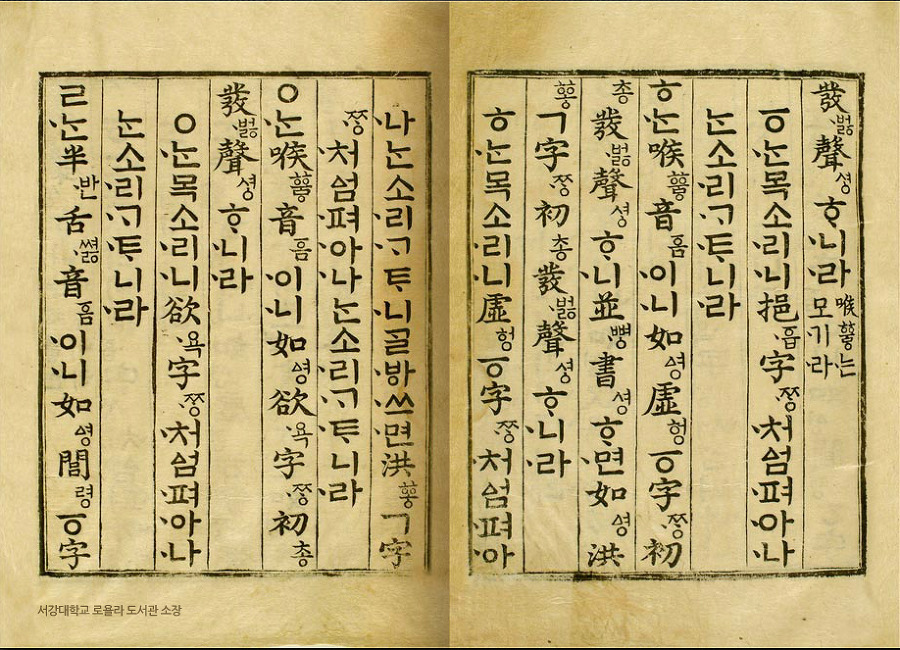 發벓聲셩ᄒᆞ니라喉ᅘᅮᇢ는모기라
ㆆᄂᆞᆫ목소리니挹ᅙᅳᆸ字ᄍᆞᆼ처ᅀᅥᆷ펴아나
ᄂᆞᆫ소리ᄀᆞᄐᆞ니라
ㅎᄂᆞᆫ喉ᅘᅮᇢ音ᅙᅳᆷ이니如ᅀᅧᆼ虛헝ㆆ字ᄍᆞᆼ初
총發벓聲셩ᄒᆞ니並뼝書셩ᄒᆞ면如ᅀᅧᆼ洪
ᅘᅩᇰㄱ字ᄍᆞᆼ初총發벓聲셩ᄒᆞ니라
ㅎᄂᆞᆫ목소리니虛헝ㆆ字ᄍᆞᆼ처ᅀᅥᆷ펴아
나ᄂᆞᆫ소리ᄀᆞᄐᆞ니ᄀᆞᆯᄫᅡ쓰면洪ᅘᅩᇰㄱ字
ᄍᆞᆼ처ᅀᅥᆷ펴아나ᄂᆞᆫ소리ᄀᆞᄐᆞ니라
ㅇᄂᆞᆫ喉ᅘᅮᇢ音ᅙᅳᆷ이니如ᅀᅧᆼ欲욕字ᄍᆞᆼ初총
發벓聲셩ᄒᆞ니라
ㅇᄂᆞᆫ목소리니欲욕字ᄍᆞᆼ처ᅀᅥᆷ펴아나
ᄂᆞᆫ소리ᄀᆞᄐᆞ니라
ㄹᄂᆞᆫ半반舌쎯音ᅙᅳᆷ이니如ᅀᅧᆼ閭령ㆆ字
서강대학교 로욜라 도서관 소장